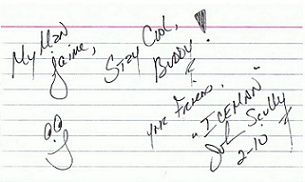 My Man
Jaime,
Stay Cool,
Buddy!
Your Friend,
"ICEMAN"
John Scully
2-10